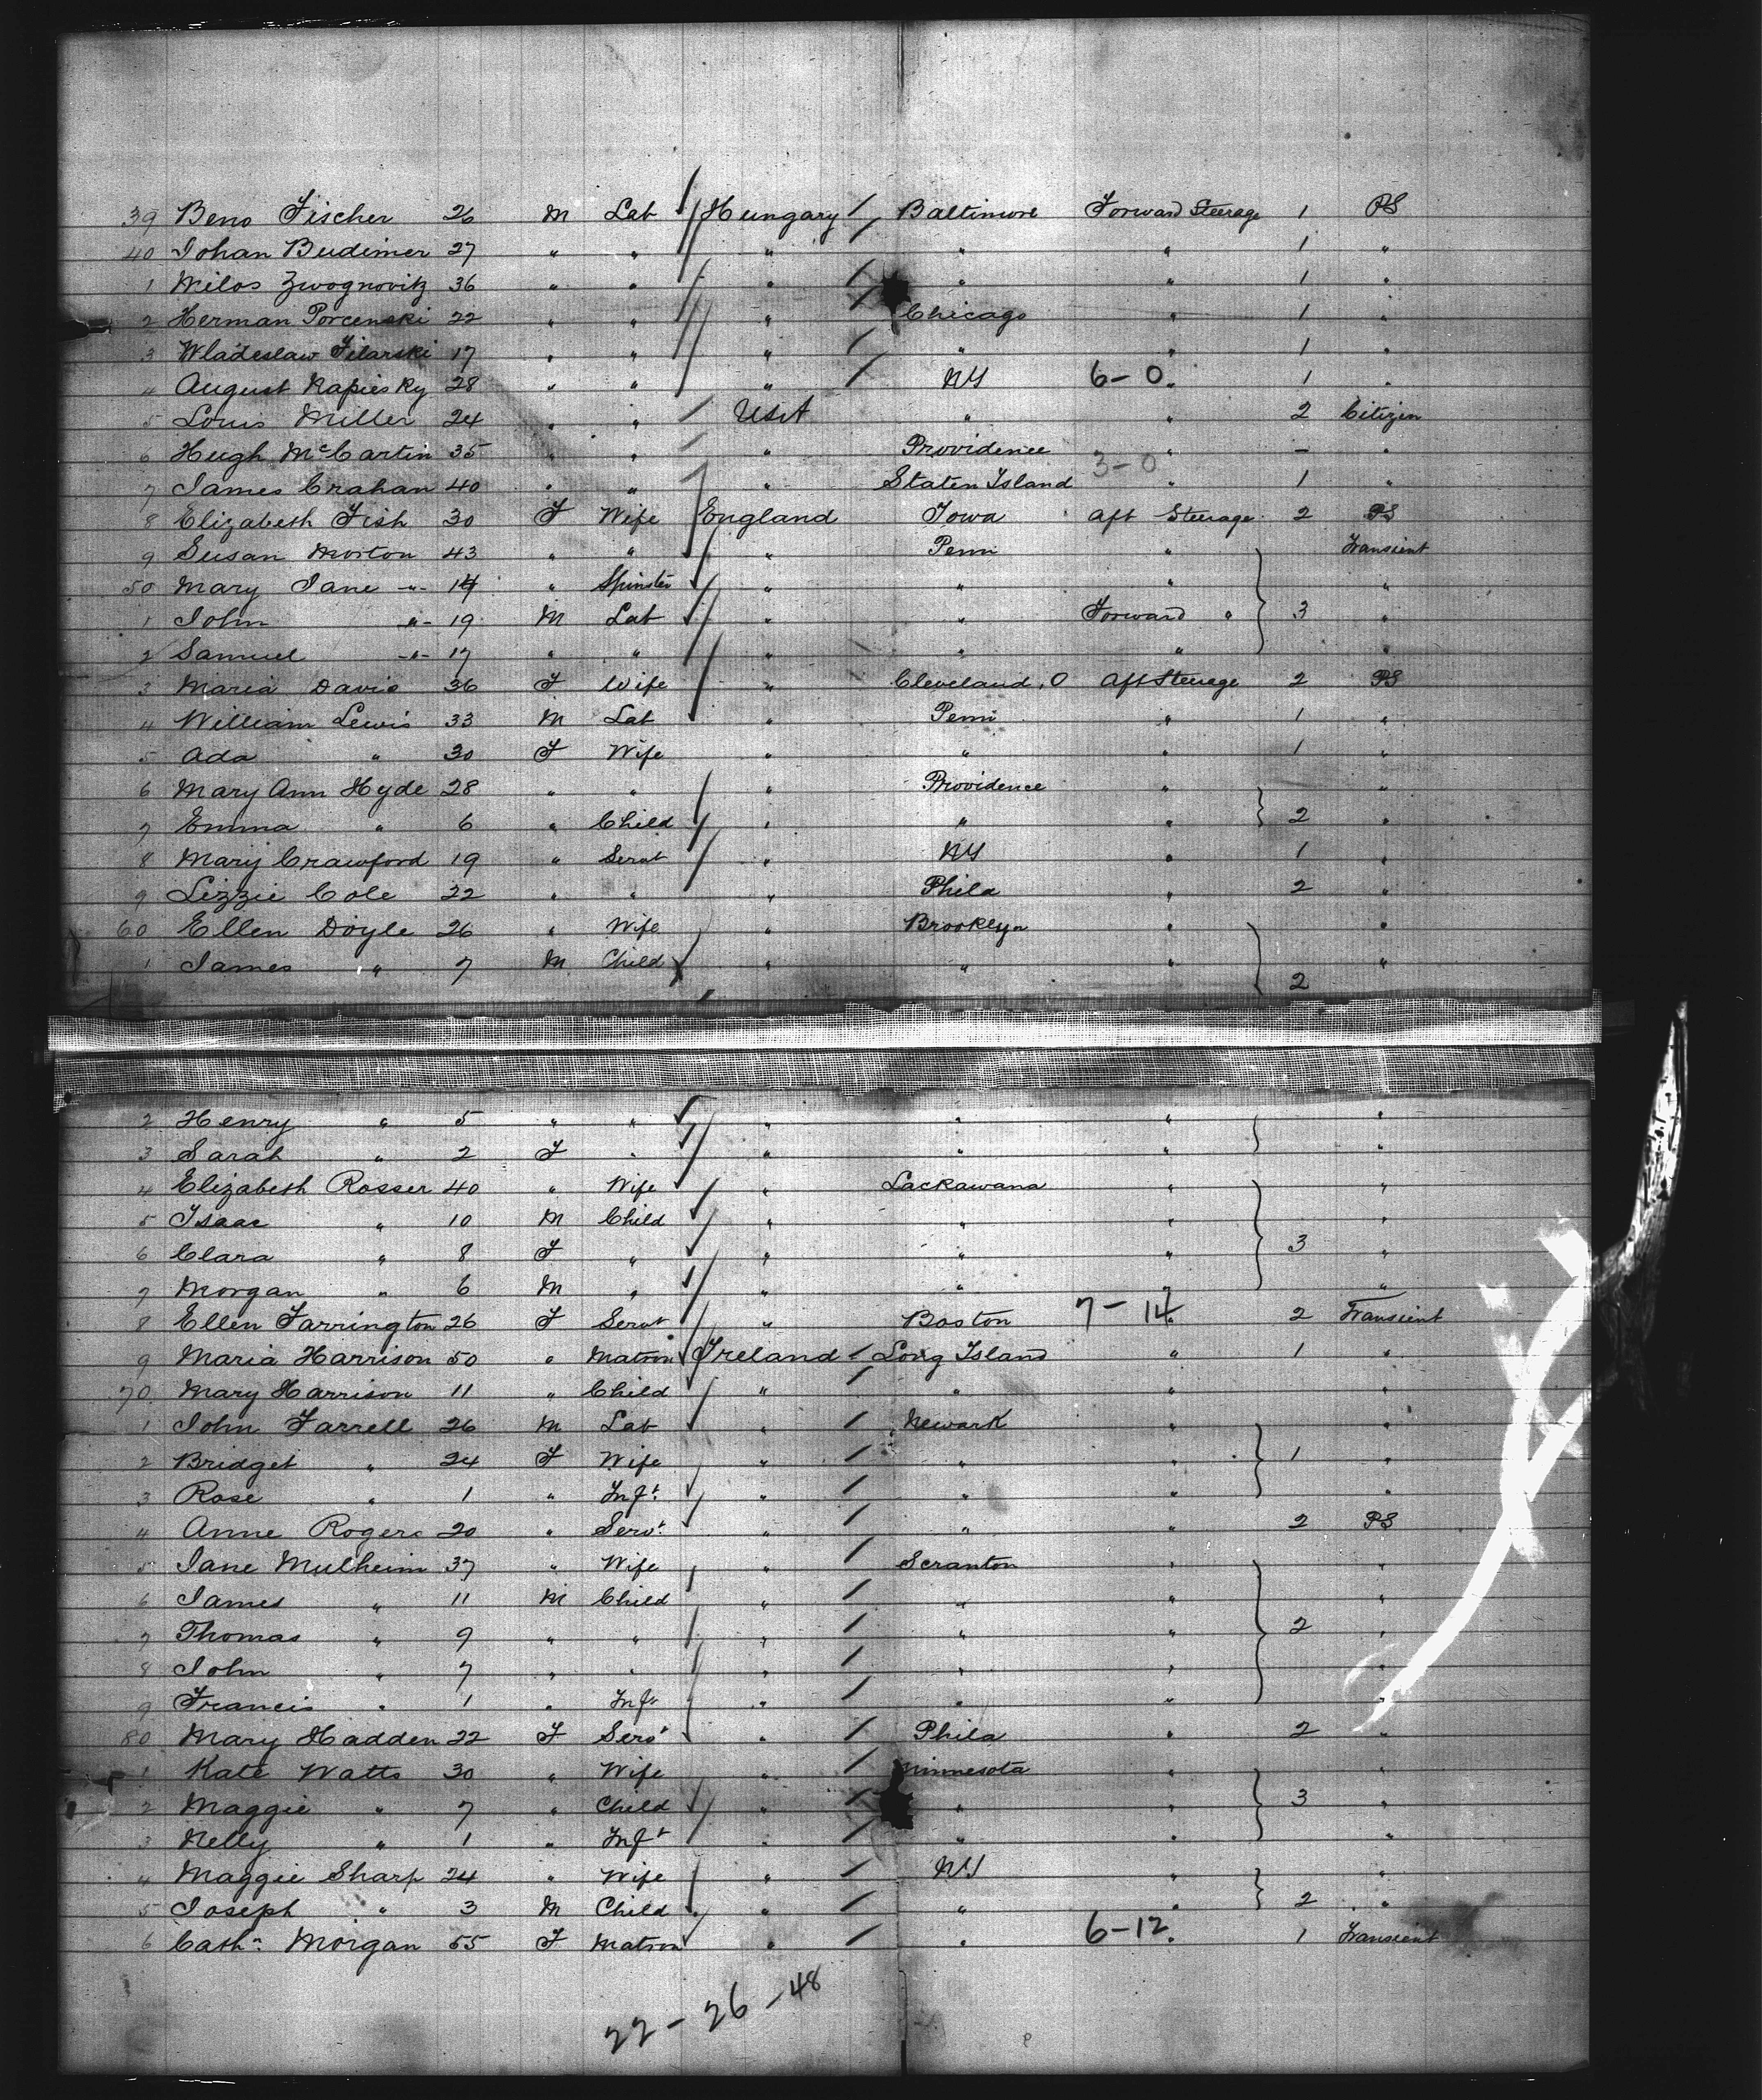 39 Beno Fischer 26 M Lab Hungary Baltimore Forward Steerage 1 PS
40 Johan Budimer 27 " " " " " 1 "
1 Milos Zwognovitz 36 " " " " " 1 "
2 Herman Porcenski 22 " " " Chicago " 1 "
3 Wladeslaw Filarski 17 " " " " " 1 "
4 August Kapiesky 28 " " " NY 6-0 " 1 "
5 Louis Miller 24 " " USA " " 2 Citizen
6 Hugh McCartin 35 " " " Providence " - "
7 James Crahan 40 " " " Staten Island 3-0 " 1 "
8 Elizabeth Fish 30 F Wife England Iowa Aft Steerage 2 PS
9 Susan Morton 43 " " " Penn " Transient
50 Mary Jane -"- 14 " Spinster " " " "
1 John -"- 19 M Lab " " Forward " 3 "
2 Samuel -"- 17 " " " " " "
3 Maria Davis 36 F Wife " Cleveland, O Aft Steerage 2 PS
4 William Lewis 33 M Lab " Penn " 1 "
5 Ada " 30 F Wife " " " 1 "
6 Mary Ann Hyde 28 " " " Providence " "
7 Emma " 6 " Child " " " 2 "
8 Mary Crawford 19 " Servt " NY " 1 "
9 Lizzie Cole 22 " " " Phila " 2 "
60 Ellen Doyle 26 " Wife " Brooklyn " "
1 James " 7 M Child " " " 2 "
2 Henry " 5 " " " " " "
3 Sarah " 2 F " " " " "
4 Elizabeth Rosser 40 " Wife " Lackawana " "
5 Isaac " 10 M Child " " " "
6 Clara " 8 F " " " " 3 "
7 Morgan " 6 M " " " " "
8 Ellen Farrington 26 F Servt " Boston 7-14 " 2 Transient
9 Maria Harrison 50 " Matron Ireland Long Island " 1 "
70 Mary Harrison 11 " Child " " " "
1 John Farrell 26 M Lab " Newark " "
2 Bridget " 24 F Wife " " " 1 "
3 Rose " 1 " Inft " " " "
4 Anne Rogers 20 " Servt " " " 2 PS
5 Jane Mulheim 37 " Wife " Scranton " "
6 James " 11 M Child " " " "
7 Thomas " 9 " " " " " 2 "
8 John " 7 " " " " " "
9 Francis " 1 " Inft " " " "
80 Mary Hadden 22 F Servt " Phila " 2 "
1 Kate Watts 30 " Wife " Minnesota " "
2 Maggie " 7 " Child " " " 3 "
3 Nelly " 1 " Inft " " " "
4 Maggie Sharp 24 " Wife " NY " "
5 Joseph " 3 M Child " " " 2 "
6 Cathn Morgan 55 F Matron " " 6-12 " 1 Transient
22-26-48